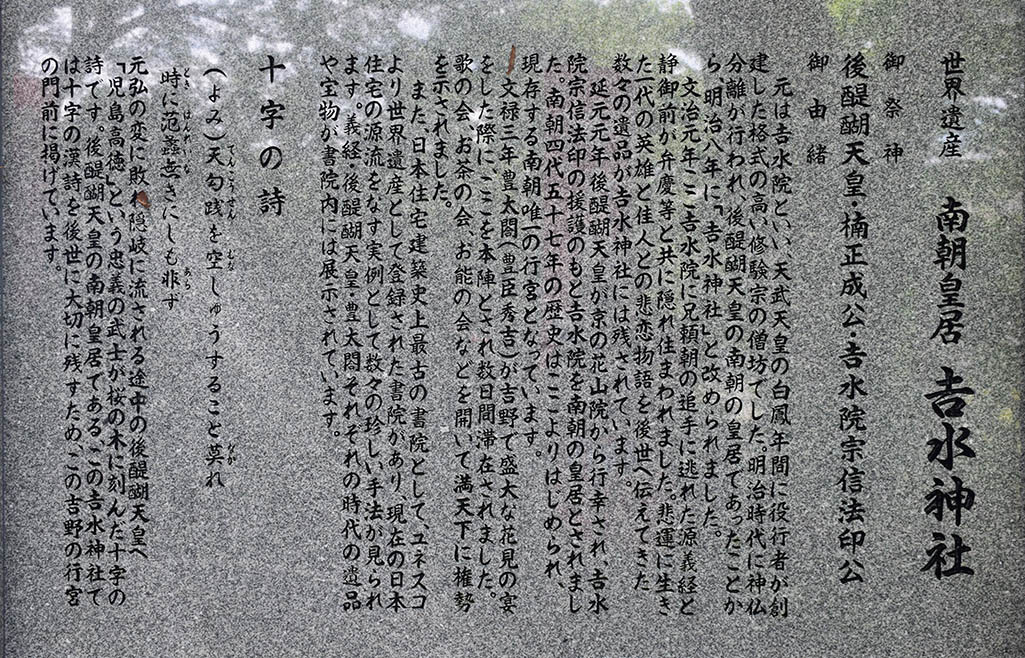 世界遺産　南朝皇居　𠮷水神社
御祭神
後醍醐天皇・楠正成公・𠮷水院宗信法印公
御由緒
元は𠮷水院といい、天武天皇の白鳳年間に役行者が創
建した格式の高い修験宗の僧坊でした。明治時代に神仏
分離が行われ、後醍醐天皇の南朝の皇居であったことか
ら、明治八年に「𠮷水神社」と改められました。
文治元年、ここ𠮷水院に兄頼朝の追手に逃れた源義経と
静御前が弁慶等と共に隠れ住まわれました。悲運に生き
た一代の英雄と佳人との悲恋物語を後世へ伝えてきた
数々の遺品が𠮷水神社には残されています。
延元元年、後醍醐天皇が京の花山院から行幸され、𠮷水
院宗信法印の援護のもと𠮷水院を南朝の皇居とされまし
た。南朝四代五十七年の歴史はここよりはじめられ、
現存する南朝唯一の行宮となっています。
文禄三年、豊太閤（豊臣秀吉）が吉野で盛大な花見の宴
をした際に、ここを本陣とされ数日間滞在されました。
歌の会、お茶の会、お能の会などを開いて満天下に権勢
を示されました。
また、日本住宅建築史上最古の書院として、ユネスコ
より世界遺産として登録された書院があり、現在の日本
住宅の源流をなす実例として数々の珍しい手法が見られ
ます。義経、後醍醐天皇、豊太閤それぞれの時代の遺品
や宝物が書院内には展示されています。
十字の詩
（よみ）天勾践を空しゅうすること莫れ
時に范蠡無きにしも非ず
元弘の変に敗れ隠岐に流される途中の後醍醐天皇へ
「児島高徳」という忠義の武士が桜の木に刻んだ十字の
詩です。後醍醐天皇の南朝皇居である、この𠮷水神社で
は十字の漢詩を後世に大切に残すため、この吉野の行宮
の門前に掲げています。